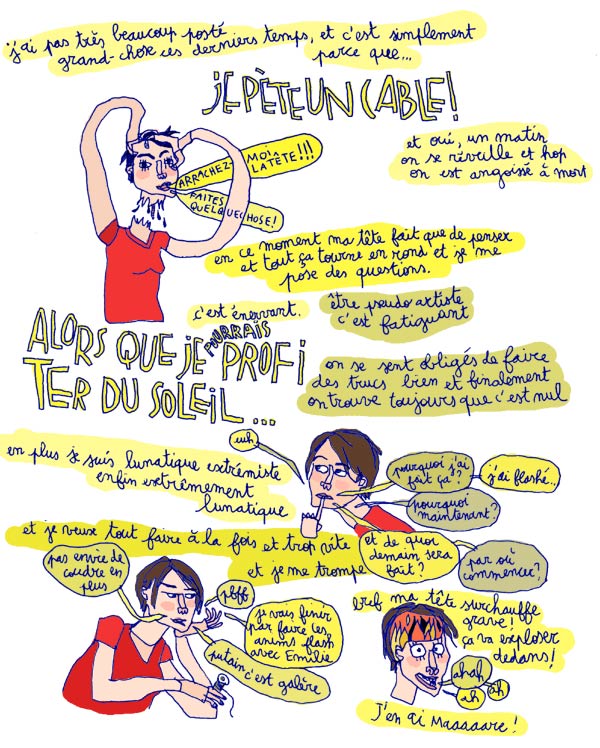 j'ai pas très beaucoup posté
grand-chose ces derniers temps, et c'est simplement
parce que...
JE PÈTE UN CABLE!
et oui, un matin
on se réveille et hop
on est angoissé à mort
ARRACHEZ-MOI
LA TÊTE!!!
FAITES
QUELQUECHOSE!
en ce moment ma tête fait que de penser
et tout ça tourne en rond et je me
pose des questions.
c'est énervant.
être pseudo artiste
c'est fatiguant
ALORS QUE JE POURRAIS PROFI
TER DU SOLEIL...
on se sent obligés de faire
des trucs bien et finalement
on trouve toujours que c'est nul
en plus je suis lunatique extrémiste
enfin extrêmement
lunatique
euh
pourquoi j'ai
fait ça?
j'ai flashé...
pourquoi
maintenant?
et de quoi
demain sera
fait?
par où
commencer?
et je veux tout faire à la fois et trop vite
et je me trompe
pas envie de
coudre en
plus
pbff
je vais finir
par faire les
anims flash
avec Emilie
putain c'est galère
bref ma tête surchauffe
grave!
ça va exploser
dedans!
ahah
ah
ah
J'en ai Maaaaare!